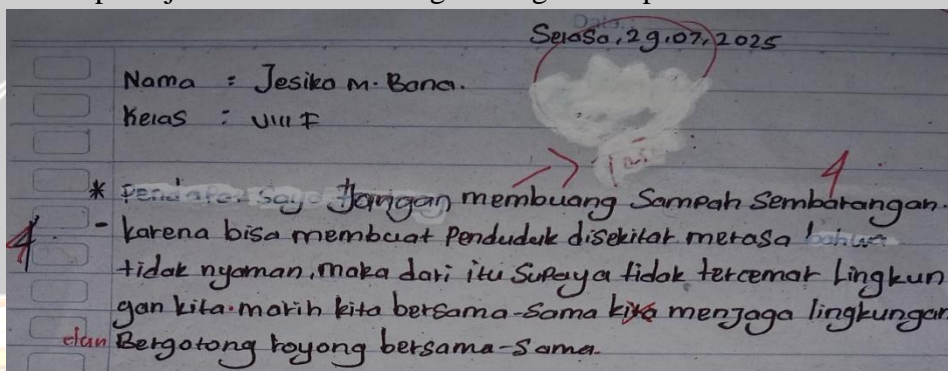 Selasa, 29.07.2025
Nama : Jesika M. Bana.
Kelas : VIII F
4
* Pendapat saya Jangan membuang Sampah Sembarangan.
4 - karena bisa membuat Penduduk disekitar merasa bahwa
tidak nyaman, maka dari itu Supaya tidak tercemar Lingkun
gan kita. marih kita bersama-sama kita menjaga lingkungan
dan Bergotong royong bersama-sama.